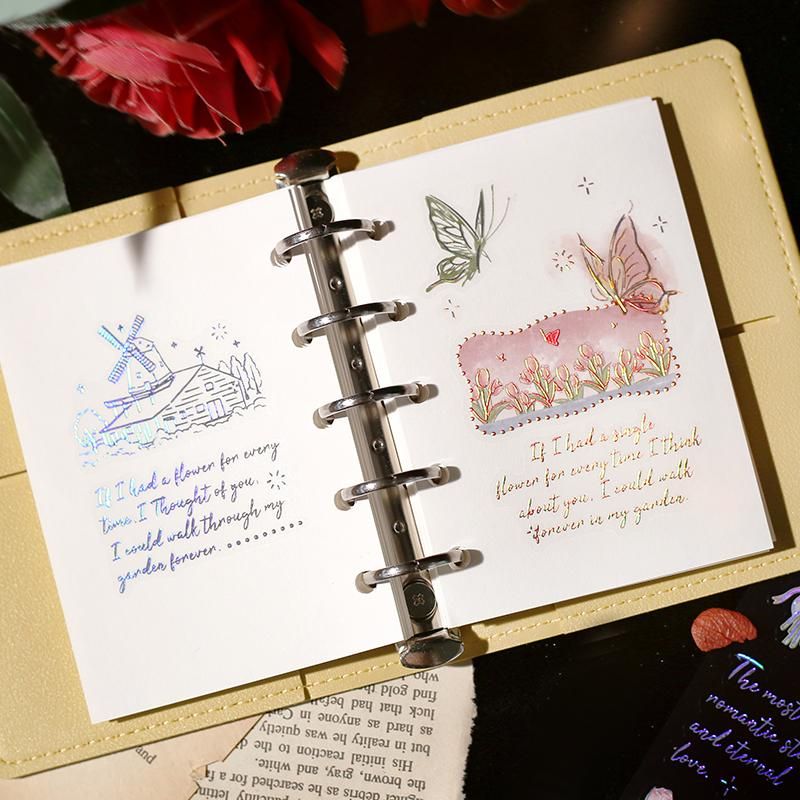 If I had a flower for every
time I Thought of you,
I could walk through my
garden forever.
If I had a single
flower for every time I think
about you, I could walk
forever in my garden.
The most
romantic
and eternal
love.
who
find gold
luck that had befall
as hard as anyone in
but in reality he was quietly
His initial reaction to the
brown, gray, and white.
debris as he searched for a
and